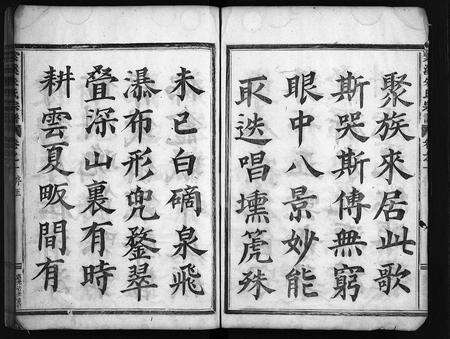 聚族來居此歌
斯哭斯傳無窮
眼中八景妙能
取迭唱壎箎殊
未已白磧泉飛
瀑布形兜鍪翠
叠深山裏有時
耕雲夏畈間有